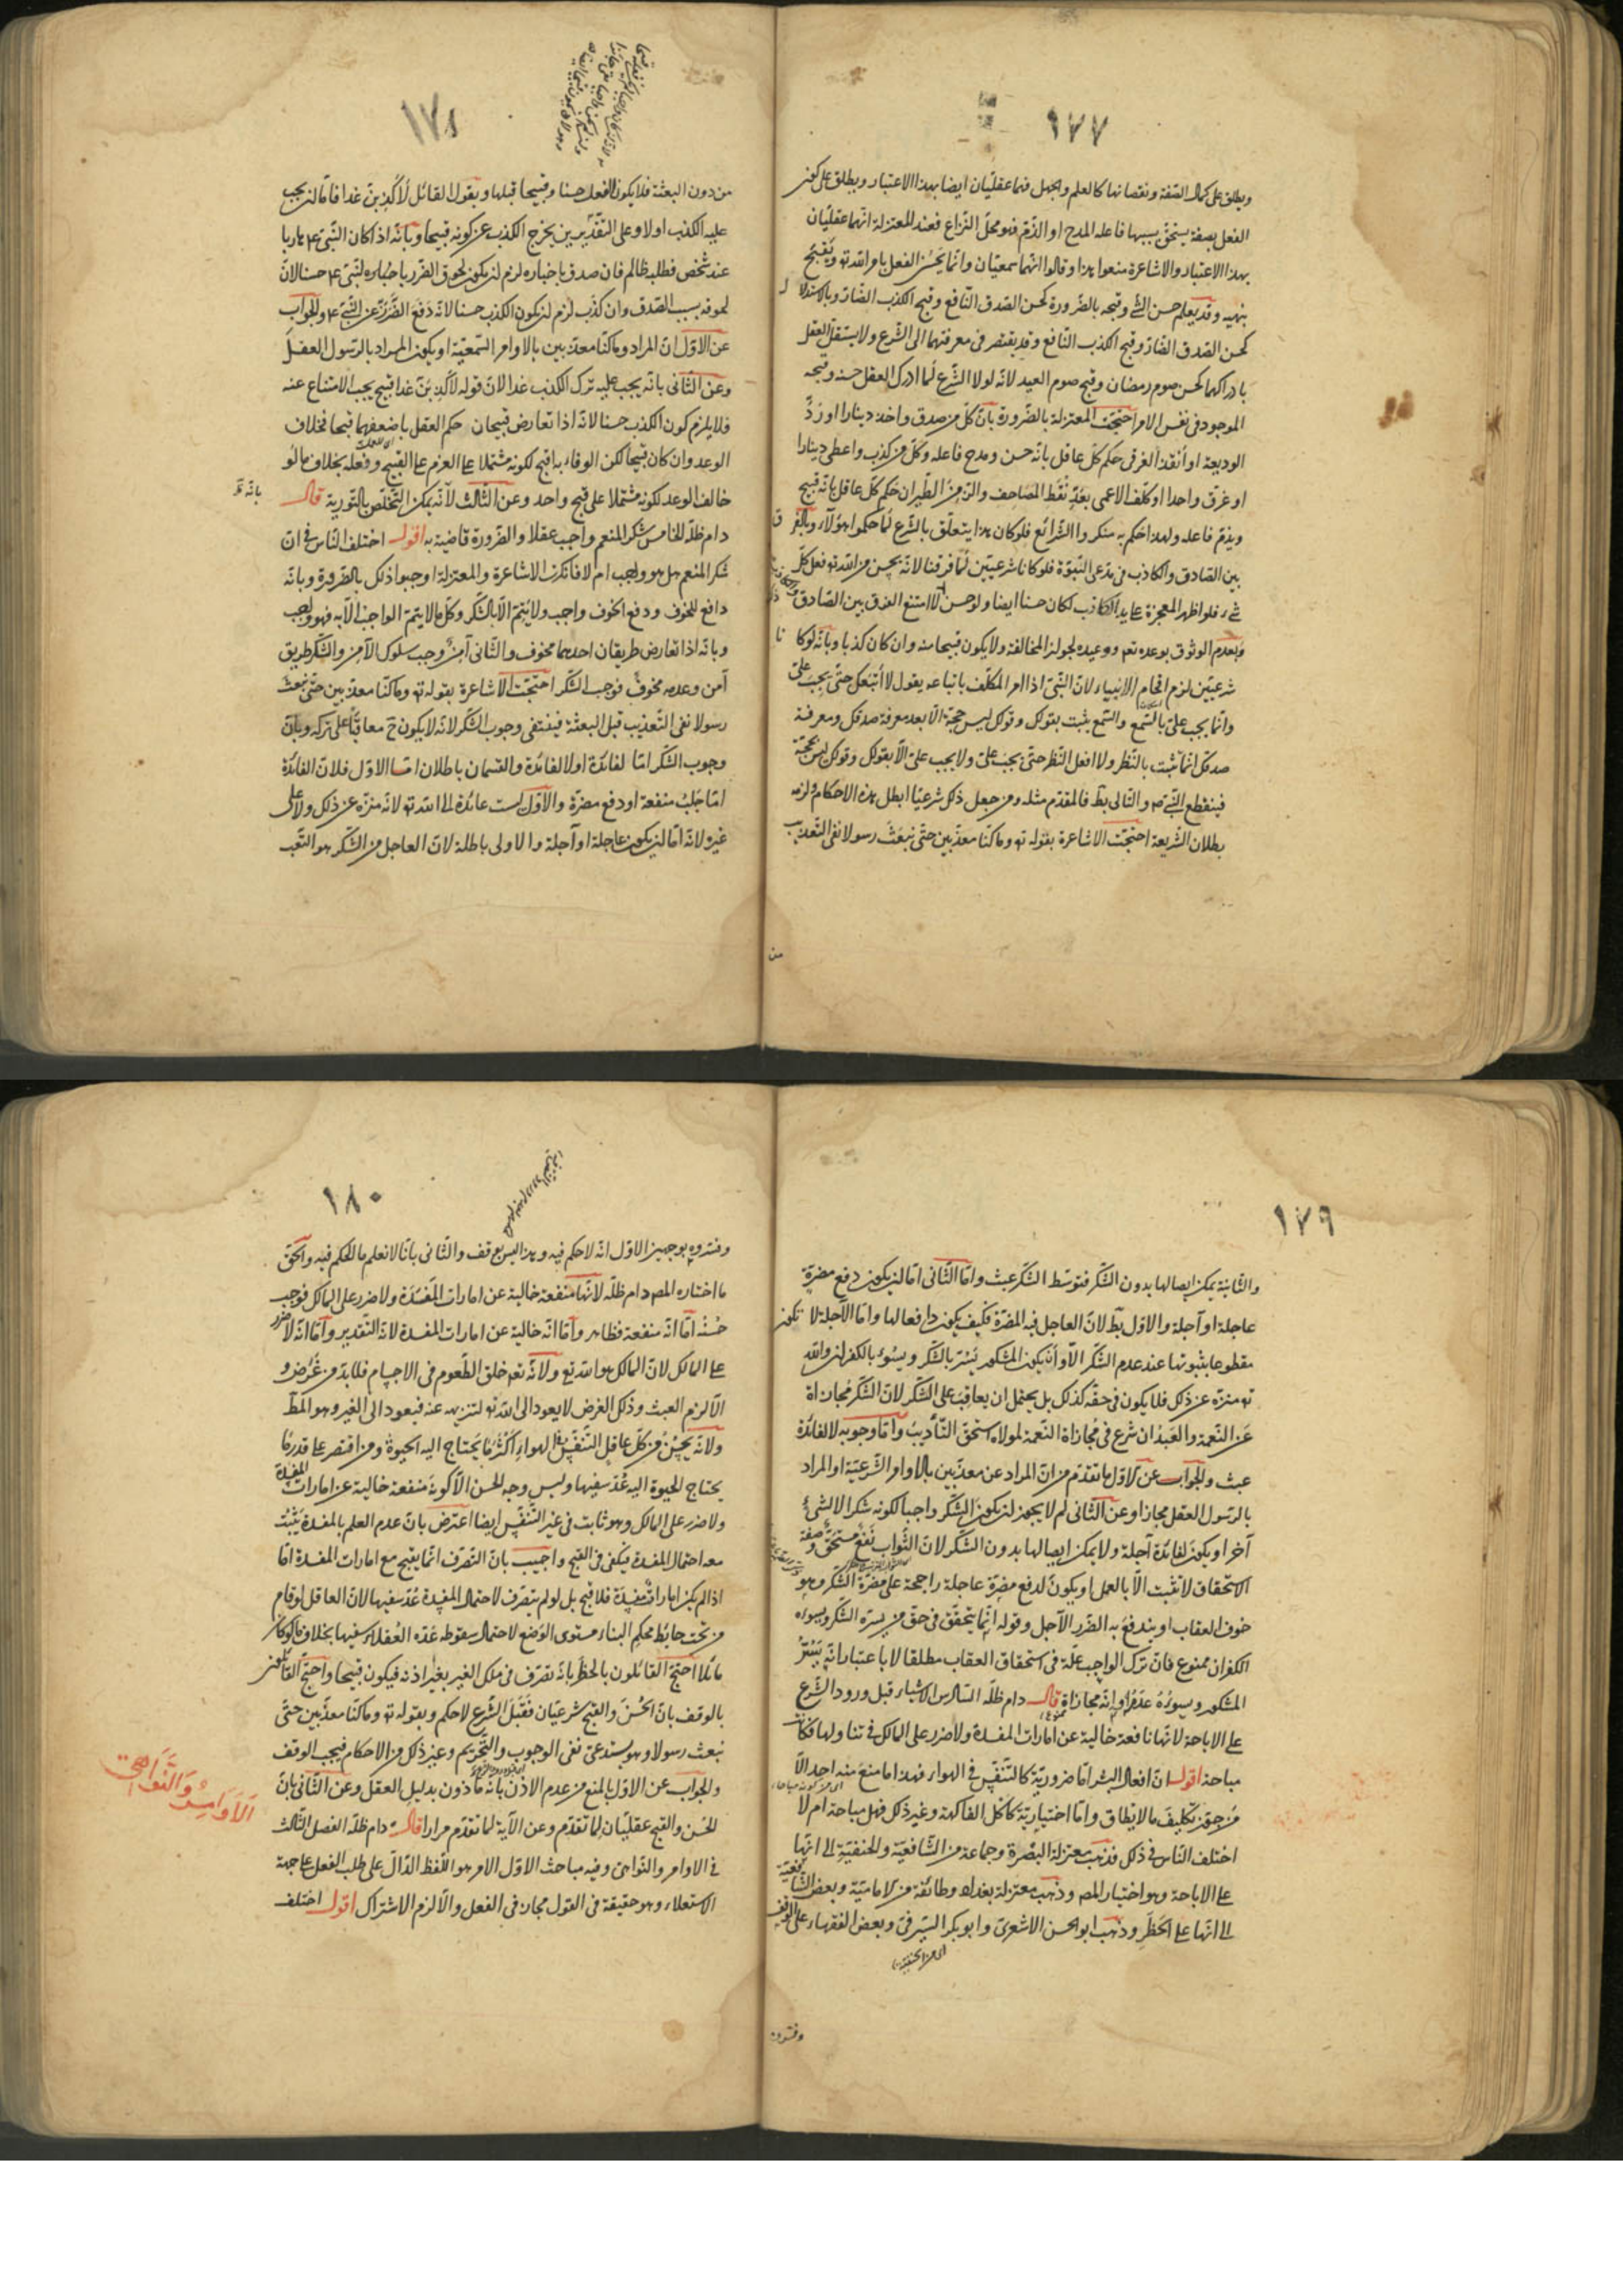 ١٧٧
ويطلق على كمال الصّفة ونقصانها كالعلم والجهل فهما عقليّان ايضا بهذا الاعتبار ويطلق على كون
الفعل بصفة يستحقّ بسببها فاعله المدح او الذّمّ فهو محلّ النّزاع فعند المعتزلة انّهما عقليّان
بهذا الاعتبار والاشاعرة منعوا هذا وقالوا انّهما سمعيّان وانّما يحسُن الفعل بامر اللّه ته ويَقبحُ
بنهيه وقد يعلم حسن الشّئ وقبحه بالضّرورة كحسن الصّدق النّافع وقبح الكذب الضّارّ وبالاستدلا ل
كحسن الصّدق الضّارّ وقبح الكذب النّافع وقد يفتقر فى معرفتهما الى الشّرع ولا يستقلّ العقل
بادراكهما كحسن صوم رمضان وقبح صوم العيد لانّه لولا الشّرع لَما ادرك العقل حسنه وقبحه
الموجود فى نفس الامر احتجّت المعتزلة بالضّرورة بانّ كلّ من صدق واخذ دينارا او رَدَّ
الوديعة او أنقذ الغرقى حكم كلّ عاقل بانّه حسن ومدح فاعله وكلّ من كذب واعطى دينارا
او غرّق واحدا او كلّف الاعمى بعَدِّ نُقَط المصاحف والزّمِن الطّيران حكم كلّ عاقل بانّه قبيح
ويذمّ فاعله ولهذا حكم به منكروا الشّرائع فلو كان هذا يتعلّق بالشّرع لَما حكموا هؤلاء وبالفر ق
بين الصّادق والكاذب فى مدّعى النّبوّة فلو كانا شرعيّين لَما فرقنا لانّه يحسن من اللّه ته فعل كلّ
شئ فلو اظهر المعجزة على يد الكاذب لكان حسنا ايضا ولو حسن لامتنع الفرق بين الصّادق
وبعدم الوثوق بوعده تع ووعيده لجواز المخالفة ولا يكون قبيحا منه وان كان كذبا وبانّه لو كا نا
شرعيّين لزم افحام الانبياء لانّ النّبىّ اذا امر المكلّف باتباعه يقول لا أتبعك حتّى يجبَ علىّ
وانّما يجب علىّ بالسّمع والسّمع يثبت بقولك وقولك ليس حجّة الّا بعد معرفة صدقك ومعرفة
صدقك انّما تثبت بالنّظر ولا افعل النّظر حتّى يجبَ علىّ ولا يجب علىّ الّا بقولك وقولك ليس بحجّة
فينقطع النّبىّ ص والتّالى بطّ فالمقدّم مثله ومن جعل ذلك شرعيّا ابطل هذه الاحكام ولزمه
بطلان الشّريعة احتجّت الاشاعرة بقوله ته وما كنّا معذّبين حتّى نبعَثَ رسولا نفى التّعذيب
من
١٧٨
من دون البعثة فلا يكون الفعل حسنا وقبيحا قبلها وبقول القائل لَأكذِبنّ غدا فامّا ان يجب
عليه الكذب اولا وعلى التّقديرين يخرج الكذب عن كونه قبيحا وبانّه اذا كان النّبىّ ع هاربا
عند شخص فطلبه ظالم فان صدق باخباره لزم ان يكون لحوق الضّرر باخباره للنّبىّ ع حسنا لانّ
لحوقه بسبب الصّدق وان كذّب لزم ان يكون الكذب حسنا لانّه دَفَعَ الضّررَ عن النّبىّ ع والجواب
عن الاوّل انّ المراد وما كنّا معذّبين بالاوامر السّمعيّة او يكون المراد بالرّسول العقلَ
وعن الثّانى بانّه يجب عليه ترك الكذب غدا لانّ قوله لاكذِبَنّ غدا قبيح يجب الامتناع عنه
فلا يلزم كون الكذب حسنا لانّه اذا تعارض قبيحان حكم العقل باضعفهما قبحا بخلاف
الوعد وان كان قبيحا لكن الوفاء به اقبح لكونه مشتملا على العزم على القبيح وفعله بخلاف ما لو
خالف الوعد لكونه مشتملا على قبح واحد وعن الثّالث لانّه يمكن التّخلّص بالتّورية قال
دام ظلّه الخامس شكر المنعم واجب عقلا والضّرورة قاضية به اقول اختلف النّاس فى انّ
شكر المنعم هل هو واجب ام لا فانكرت الاشاعرة والمعتزلة اوجبوا ذلك بالضّرورة وبانّه
دافع للخوف ودفع الخوف واجب ولا يتمّ الّا بالشّكر وكلّ ما لا يتمّ الواجب الّا به فهو واجب
وبانّه اذا تعارض طريقان احدهما مخوف والثّانى آمنٌ وجب سلوك الآمن والشّكر طريق
آمن وعدمه مخوفٌ فوجب الشّكر احتجّت الاشاعرة بقوله ته وما كنّا معذّبين حتّى نبعث
رسولا نفى التّعذيب قبل البعثة فينتفى وجوب الشّكر لانّه لا يكون ح معاقبًا على تركه وبانّ
وجوب الشّكر امّا لفائدة اولا لفائدة والقسمان باطلان امّا الاوّل فلانّ الفائدة
امّا جَلبُ منفعة او دفع مضرّة والاوّل ليست عائدة الى اللّه ته لانّه منزّه عن ذلك ولا على
غيره لانّه امّا ان يكون عاجلة او آجلة والاولى باطلة لانّ العاجل من الشّكر هو التّعب
١٧٩
والثّانية يمكن ايصالها بدون الشّكر فتوسّط الشّكر عبث وامّا الثّانى امّا ان يكون دفع مضرّة
عاجلة او آجلة والاوّل بطّ لانّ العاجل فيه المضرّة فكيف يكون دافعا لها وامّا الآجلة لا تكون
مقطوعا بثبوتها عند عدم الشّكر الّا وأن يكون المشكور يَسُرّ بالشّكر ويسُوءُ بالكفران واللّه
ته منزّه عن ذلك فلا يكون فى حقّه كذلك بل يحتمل ان يعاقِبَ على الشّكر لانّ الشّكر مُجازاة
عَنِ النّعمة والعَبدُ ان شرع فى مُجازاة النّعمة لمولاه استحقّ التّأديبَ وامّا وجوبه لا لفائدة
عبث والجواب عن الاوّل ما تقدّم من انّ المراد عن معذّبين بالاوامر الشّرعيّة او المراد
بالرّسول العقل مجازا وعن الثّانى لم لا يجوز ان يكون الشّكر واجبا لكونه شكرا لا لشئ
آخر او يكون لفائدة آجلة ولا يمكن ايصالها بدون الشّكر لانّ الثّواب نفعٌ مستحَقّ وصفة
الاستحقاق لا تثبت الّا بالعمل او يكون لدفع مضرّة عاجلة راجحة على مضرّة الشّكر وهو
خوف العقاب او يندفعُ به الضّرر الآجل وقوله انّما يتحقّق فى حقّ من يسرّه الشّكر ويسوءه
الكفران ممنوع فانّ ترك الواجب علّة فى استحقاق العقاب مطلقا لا باعتبار انّه يَسُرُّ
المشكور ويسوءُهُ عدَمُه او انّه مجازاة قال دام ظلّه السّادس الاشياء قبل ورود الشّرع
على الاباحة لانّها نافعة خالية عن امارات المفسدة ولا ضرر على المالك فى تناولها فكانت
مباحة اقول انّ افعال البشر امّا ضروريّة كالتّنفّس فى الهواء فهذا ما منع منه احد الّا
مَن جوّز تكليفَ ما لا يطاق وامّا اختياريّة كاكل الفاكهة وغير ذلك فهل مباحة ام لا
اختلف النّاس فى ذلك فذهب معتزلة البصْرة وجماعة من الشّافعيّة والحنفيّة الى انّها
على الاباحة وهو اختيار المصر وذهب معتزلة بغداد وطائفة من الاماميّة وبعض الشّافعيّة
الى انّها على الحَظَرِ وذهب ابو الحسن الاشعرىّ وابو بكر السّيرفىّ وبعض الفقهاء على الوقف
اى من الحنفيّة
وفسّروه
١٨٠
وفسّروه بوجهين الاوّل انّه لا حكم فيه وهذا ليس بوقف والثّانى بانّا لا نعلم ما الحكم فيه والحقّ
ما اختاره المصر دام ظلّه لانّها منفعة خالية عن امارات المَفسَدَة ولا ضرر على المالك فوجب
حُسنُه امّا انّه منفعة فظاهر وامّا انّه خالية عن امارات المفسدة لانّه التّقدير وامّا انّه لا ضرر
على المالك لانّ المالك هو اللّه تع ولانّه تع خلق الطّعوم فى الاجسام فلا بدّ من غَرَض و
الّا لزم العبث وذلك الغرض لا يعود الى اللّه ته لتنزّهه عنه فيعود الى الغير وهو المطّ
ولانّه يَحسُنُ من كلّ عاقل التّنفّس فى الهواءِ اكثرَ ممّا يَحتاج اليه الحيوة ومن اقتصر على قدر مّا
يحتاج الحيوة اليه عُدّ سفيها وليس وجه الحسن الّا كونه منفعة خالية عن امارات المفسدة
ولا ضرر على المالك وهو ثابت فى غير التّنفّس ايضا اعتُرض بانّ عدم العلم بالمفسدة يَثبُتُ
معه احتمال المفسدة فيكفى فى القبح واجيب بانّ التّصرّف انّما يقبح مع امارات المفسدة امّا
اذا لم يكن امارات مفسدة فلا قبح بل لو لم يتصرّف لاحتمال المفسدة عُدّ سفيها لانّ العاقل لو قام
من تحت حائط محكم البناء مستوى الوَضع لاحتمال سقوطه عدّه العُقلاء سفيها بخلاف ما لو كان
مائلا احتجّ القائلون بالحظر بانّه تصرّف فى ملك الغير بغير اذنه فيكون قبيحا واحتجّ القائلون
بالوقف بانّ الحُسنَ والقبح شرعيّان فَقَبلَ الشّرع لا حكم وبقوله ته وما كنّا معذّبين حتّى
نبعث رسولا وهو يستدعى نفى الوجوب والتّحريم وغير ذلك من الاحكام فيجب الوقف
والجواب عن الاوّل بالمنع من عدم الاذن بانّه مأذون بدليل العقل وعن الثّانى بانّ
الحُسن والقبح عقليّان لِما تقدّم وعن الآية لما تقدّم مرارا قال دام ظلّه الفصل الثّالث
فى الاوامر والنّواهى وفيه مباحث الاوّل الامر هو اللّفظ الدّالّ على طلب الفعل على جهة
الاستعلاء وهو حقيقة فى القول مجاز فى الفعل والّا لزم الاشتراك اقول اختلف
اَلْاَوَامِرُ وَالنَّوَاهِى